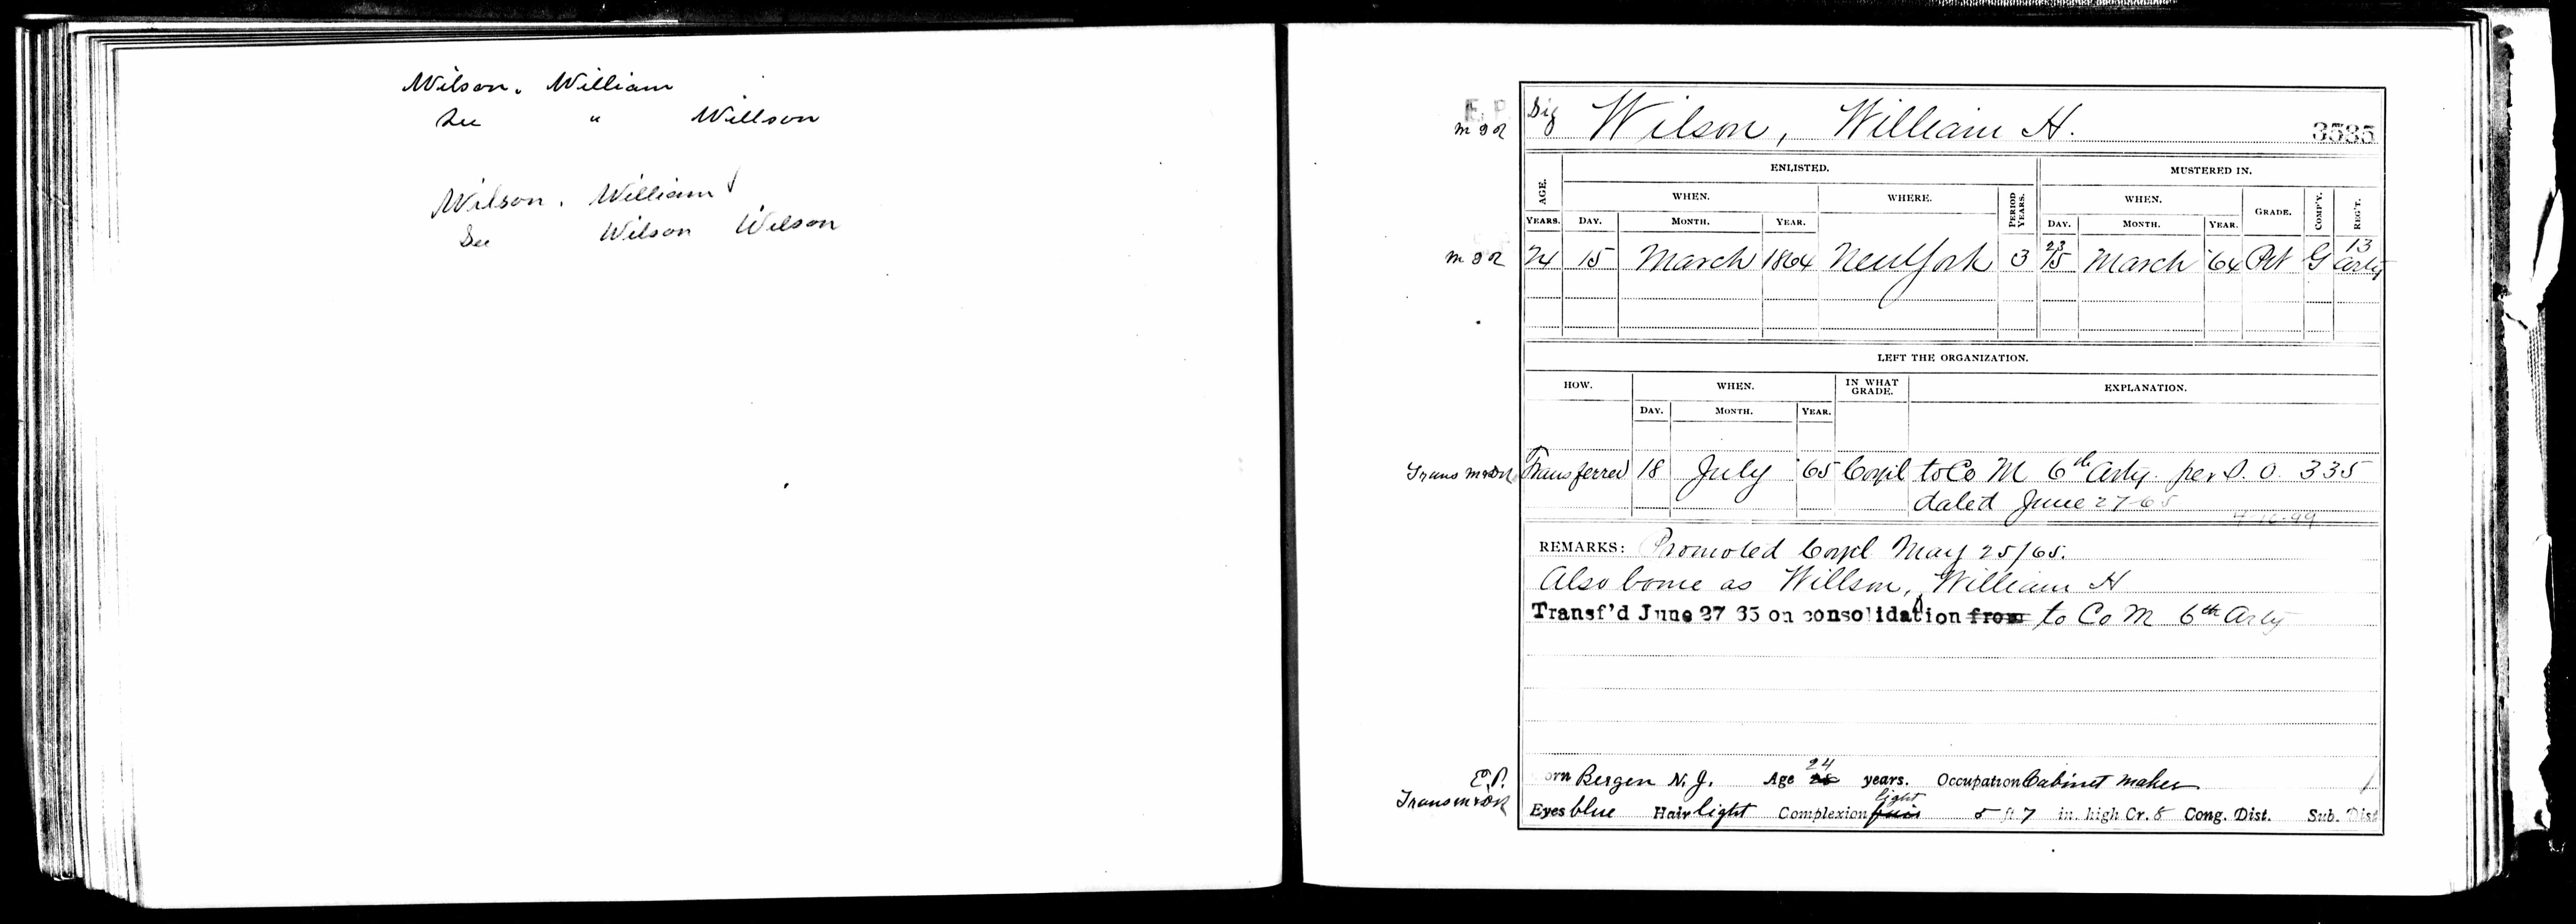 Wilson, William
See " Willson
Wilson, William
See Wilson Wilson
E. P.
Sig Wilson, William H. 3585
M & R
AGE. ENLISTED. MUSTERED IN.
WHEN. WHERE. PERIOD YEARS. WHEN. GRADE. COMP'Y. REG'T.
YEARS. DAY. MONTH. YEAR. DAY. MONTH. YEAR.
23 13
24 15 March 1864 New York 3 15 March '64 Pvt G Arty
LEFT THE ORGANIZATION.
HOW. WHEN. IN WHAT GRADE. EXPLANATION.
DAY. MONTH. YEAR.
Transferred 18 July '65 Corpl to Co M 6th Arty. per S. O. 335
dated June 27-65
REMARKS: Promoted Corpl May 25/65.
Also borne as Willson, William H
Transf'd June 27 65 on consolidation from to Co M 6th Arty
24
E.P. orn Bergen N. J. Age years. Occupation Cabinet maker
light
Eyes blue Hair light Complexion fair 5 ft. 7 in. high Cr. 8 Cong. Dist. Sub. Dist